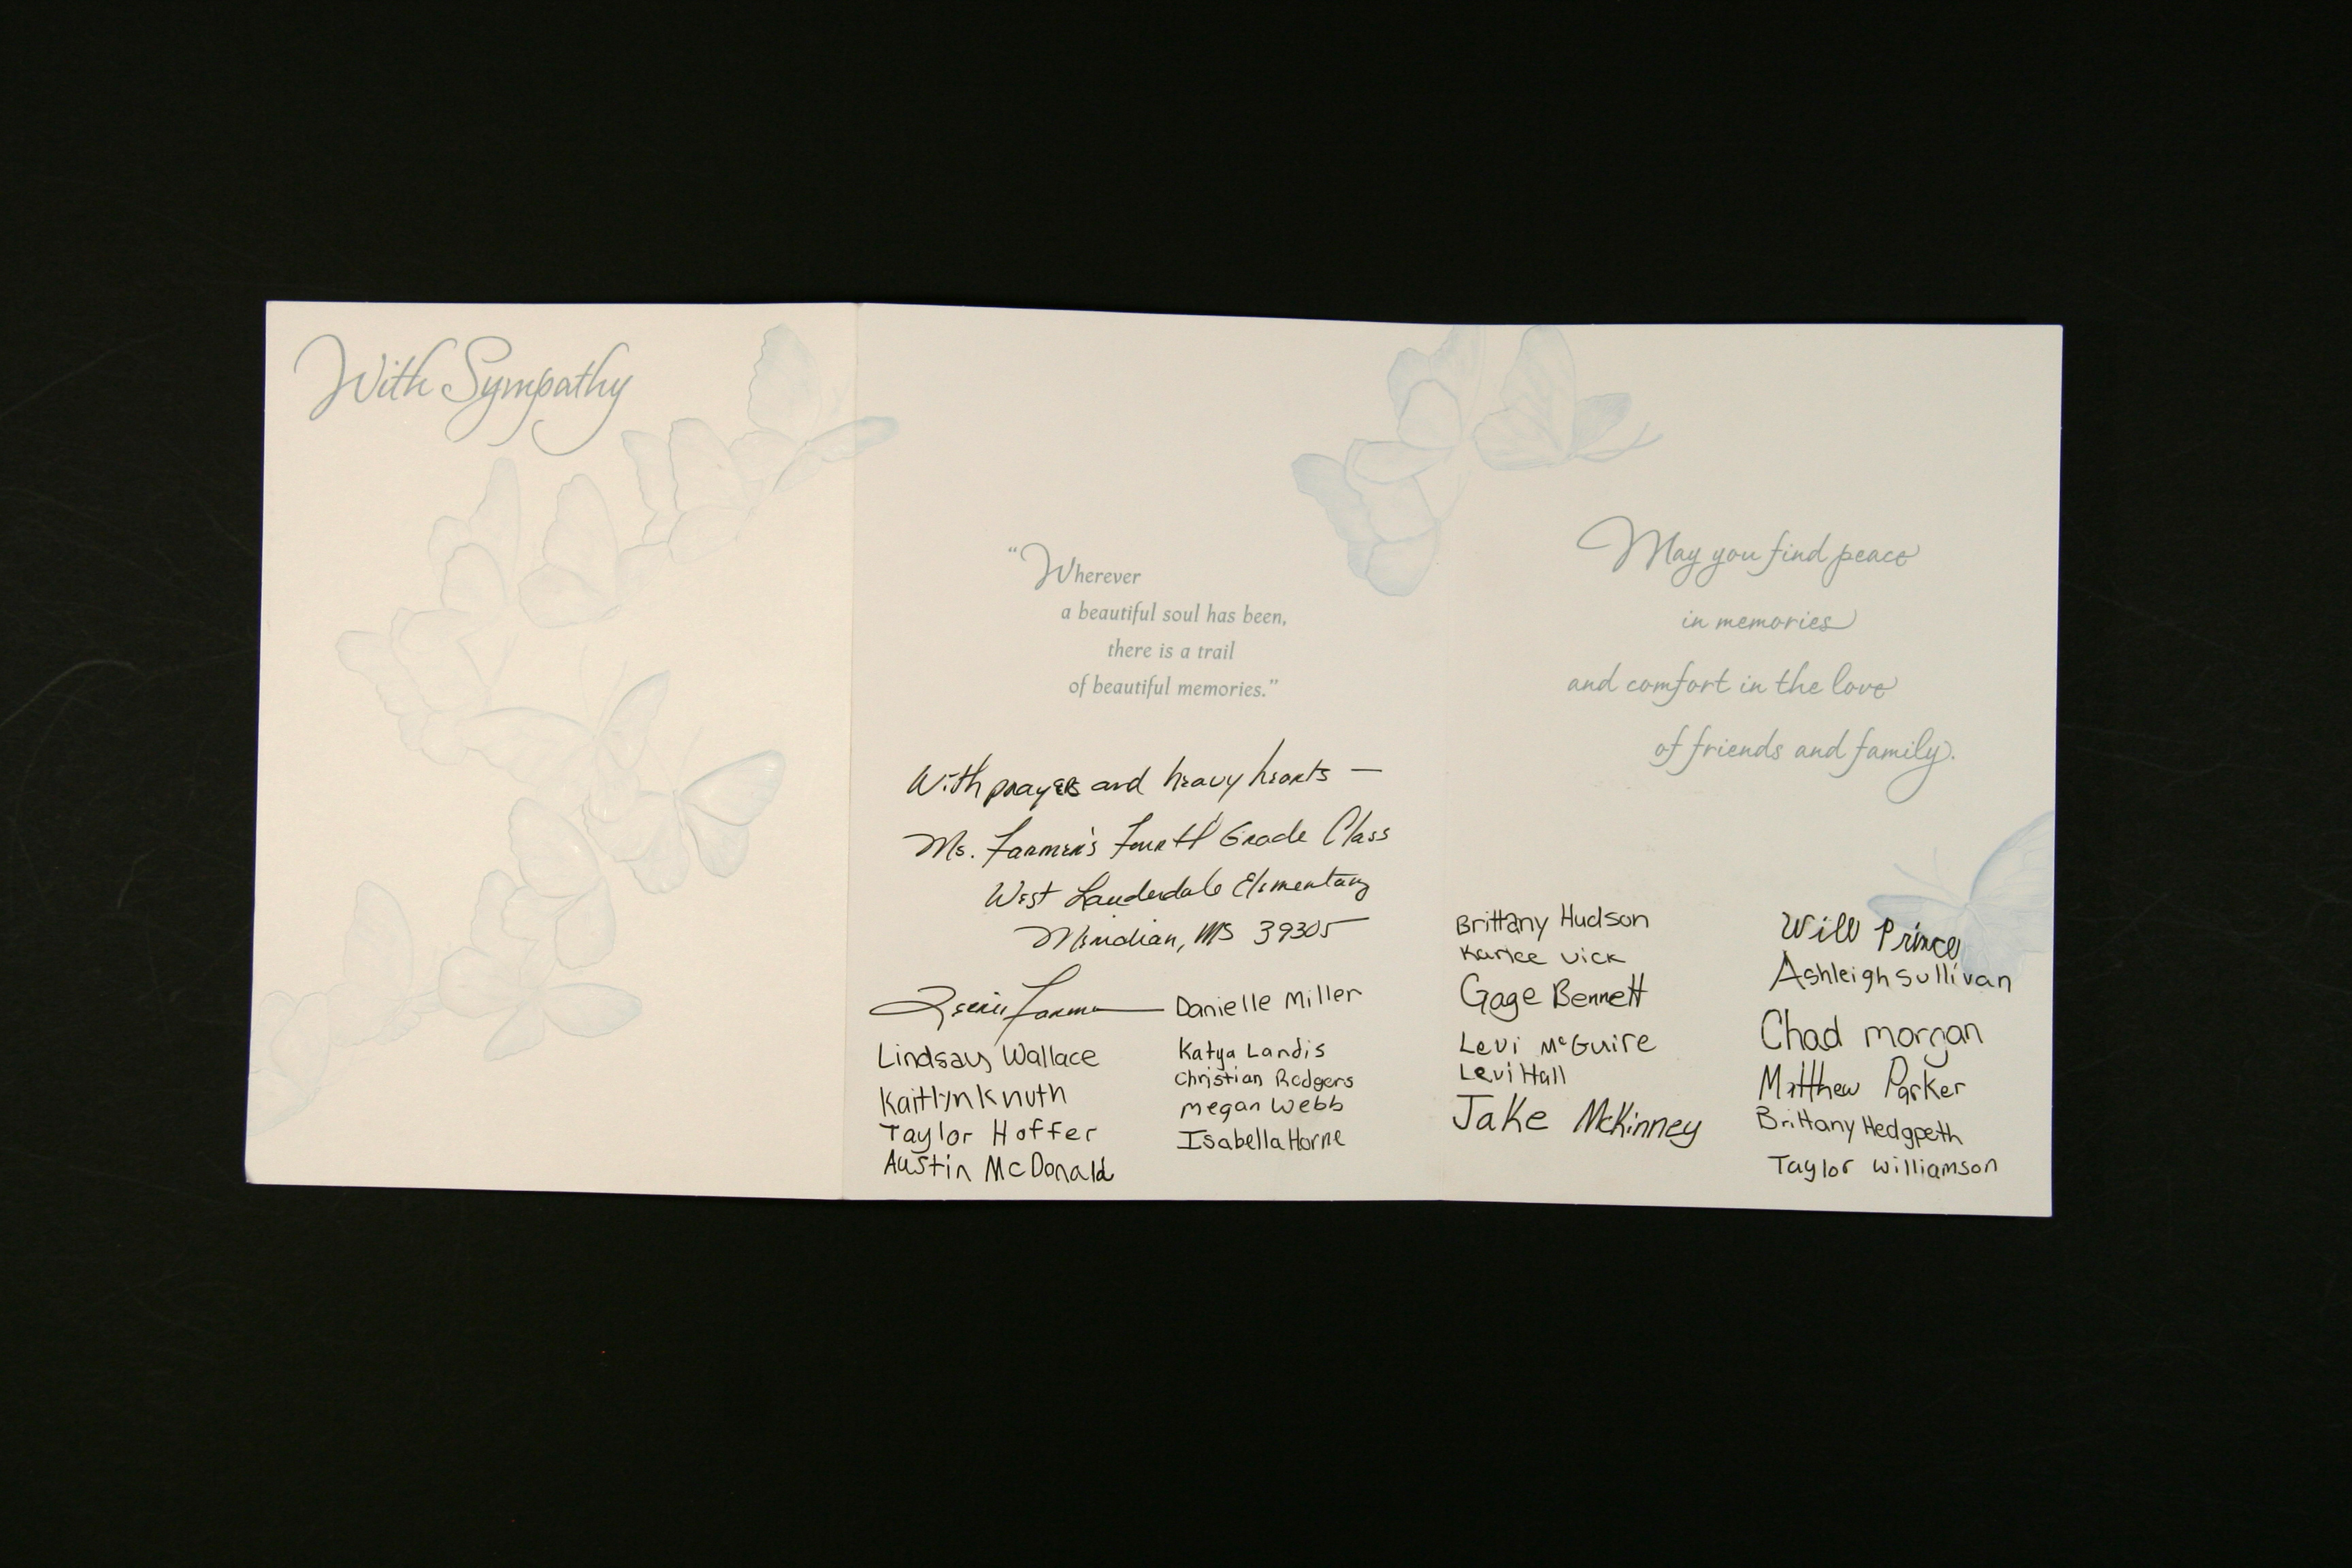 With Sympathy
“Wherever
a beautiful soul has been,
there is a trail
of beautiful memories.”
With prayers and heavy hearts —
Ms. Farmer's Fourth Grade Class
West Lauderdale Elementary
Meridian, MS 39305
Farmer
Lindsay Wallace
Kaitlyn Knuth
Taylor Hoffer
Austin McDonald
Danielle Miller
Katya Landis
Christian Rodgers
megan Webb
Isabella Horne
May you find peace
in memories
and comfort in the love
of friends and family.
Brittany Hudson
Karlee Vick
Gage Bennett
Levi McGuire
Levi Hall
Jake McKinney
Will Prince
Ashleigh Sullivan
Chad morgan
Matthew Parker
Brittany Hedgpeth
Taylor Williamson